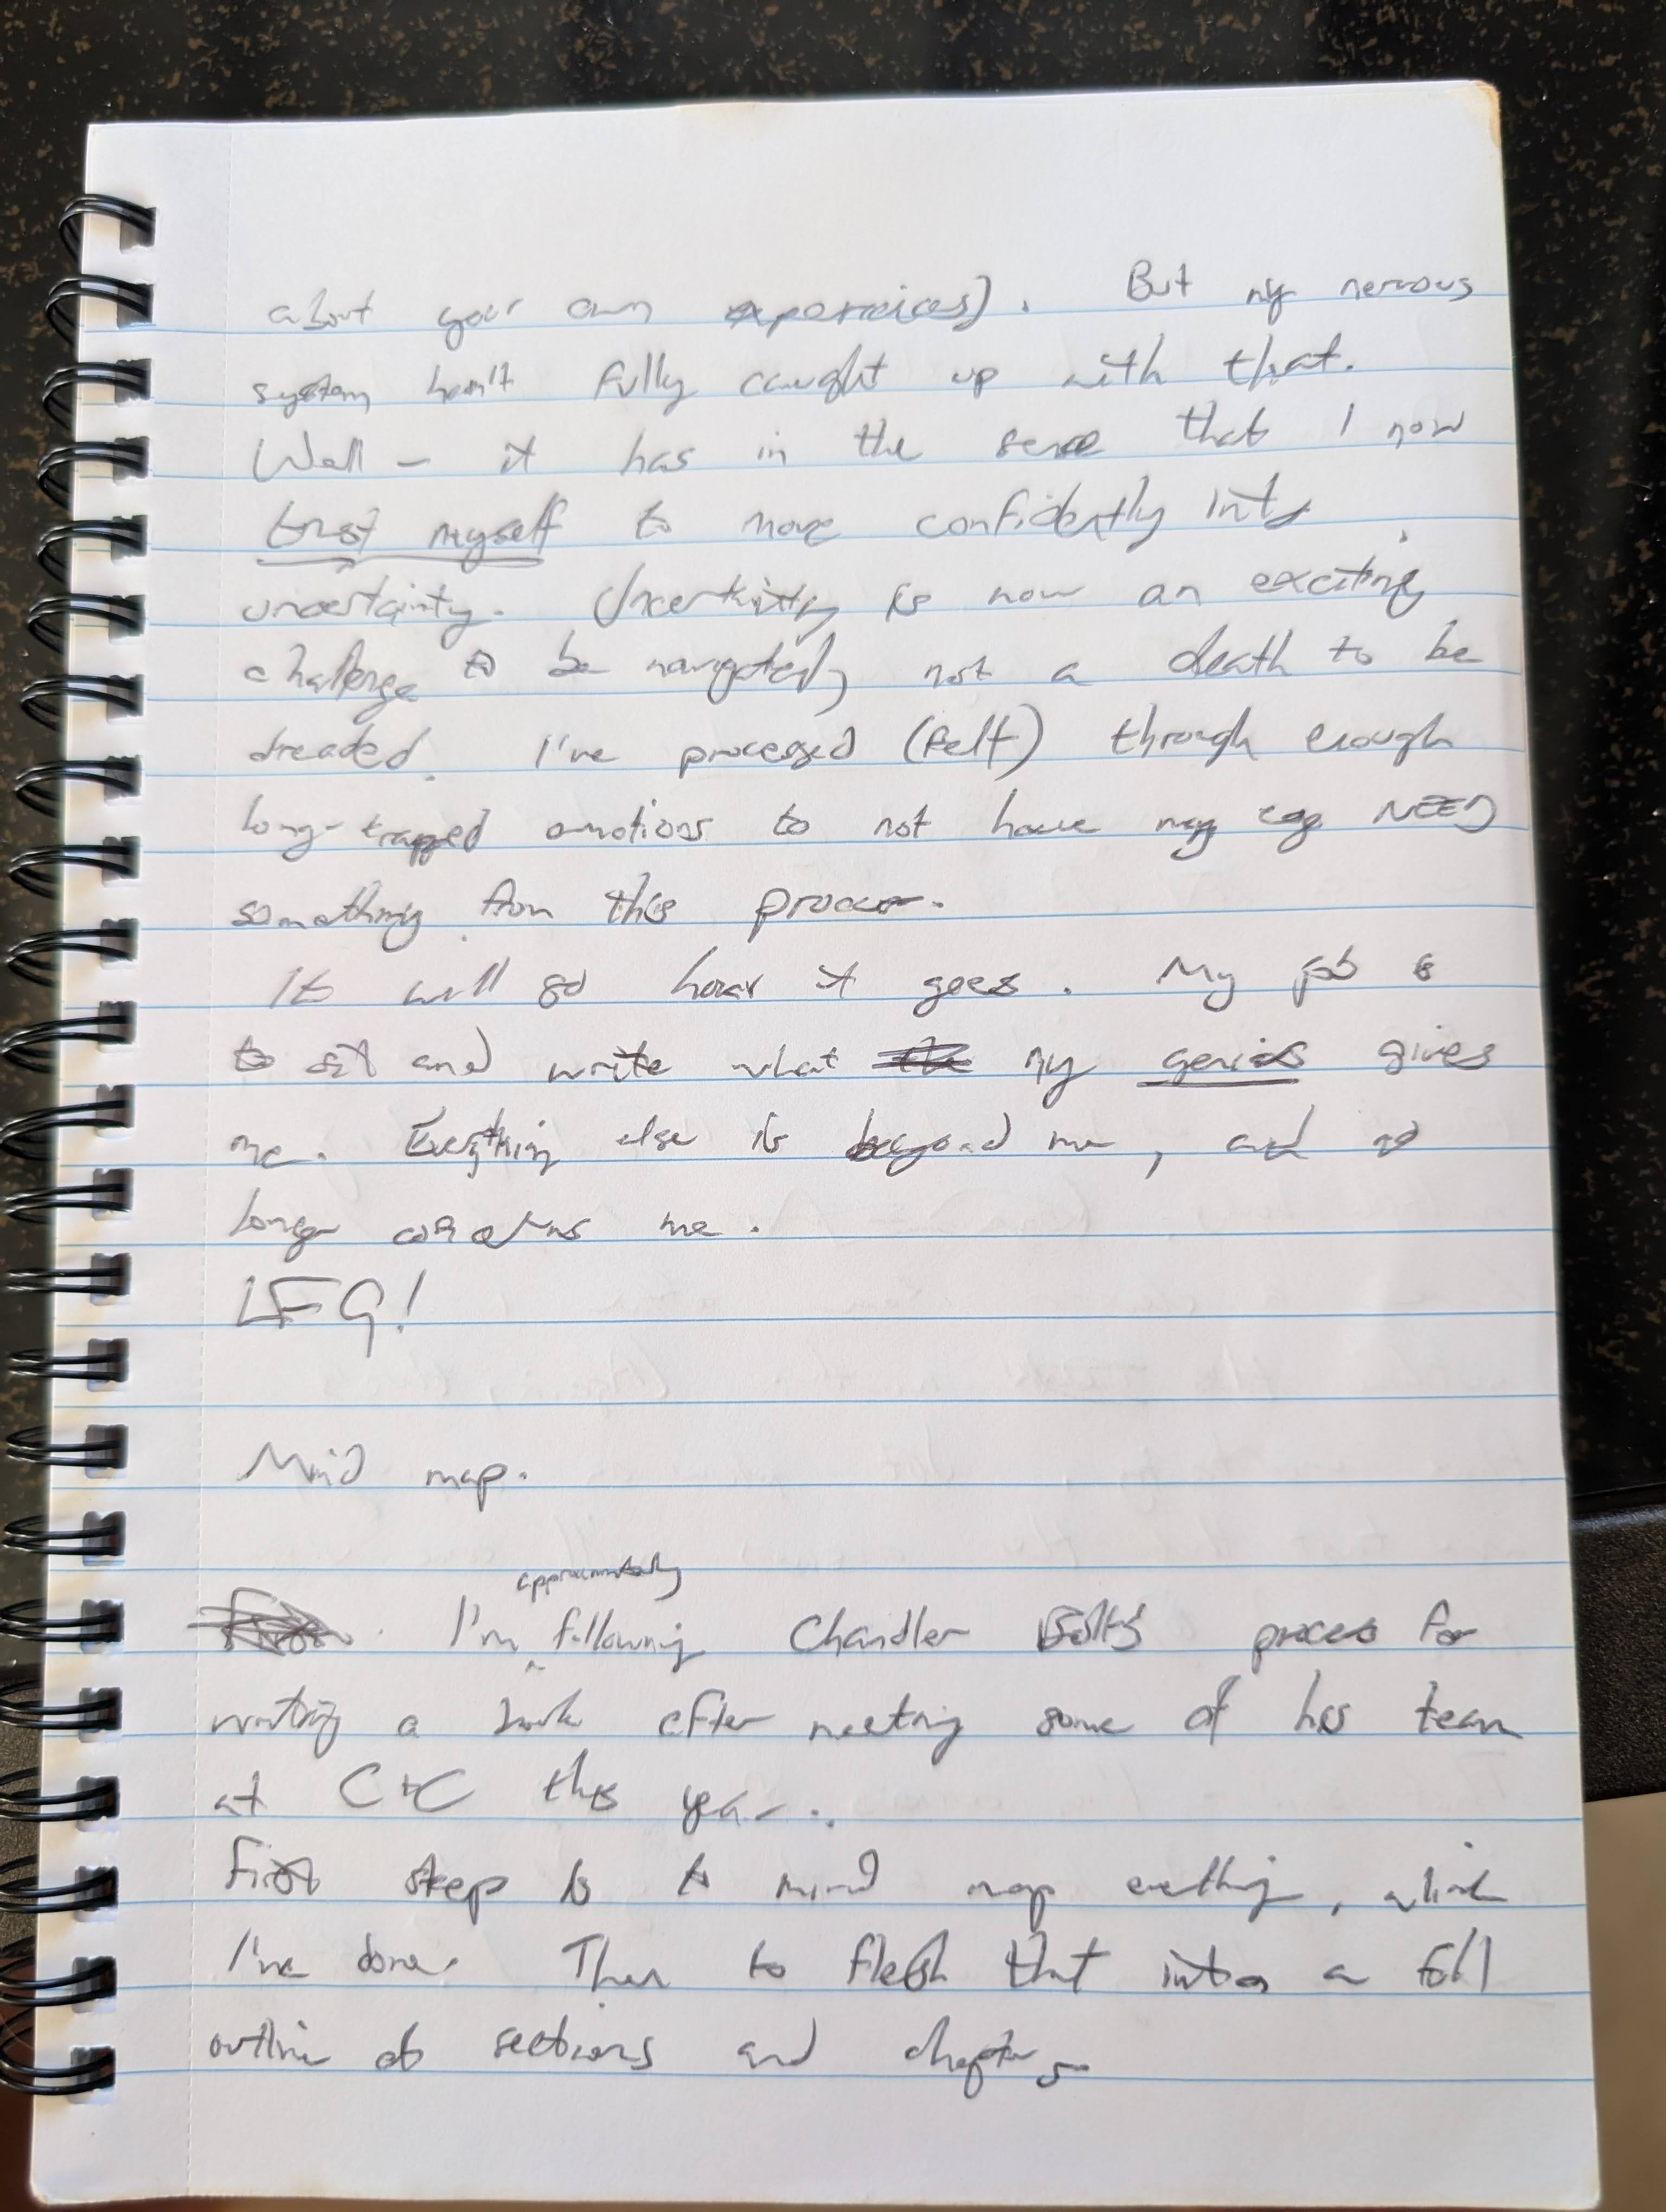 about your own experiences). But my nervous
system hasn't fully caught up with that.
Well – it has in the sense that I now
trust myself to move confidently into
uncertainty. Uncertainty is now an exciting
challenge to be navigated, not a death to be
dreaded. I've processed (felt) through enough
long-trapped emotions to not have my ego NEED
something from this process.
It will go how it goes. My job is
to sit and write what my genius gives
me. Everything else is beyond me, and no
longer concerns me.
LFG!
Mind map.
approximately
I'm following Chandler Bolt's process for
writing a book after meeting some of his team
at C+C this year.
First step is to mind map everything, which
I've done. Then to flesh that into a full
outline of sections and chapters